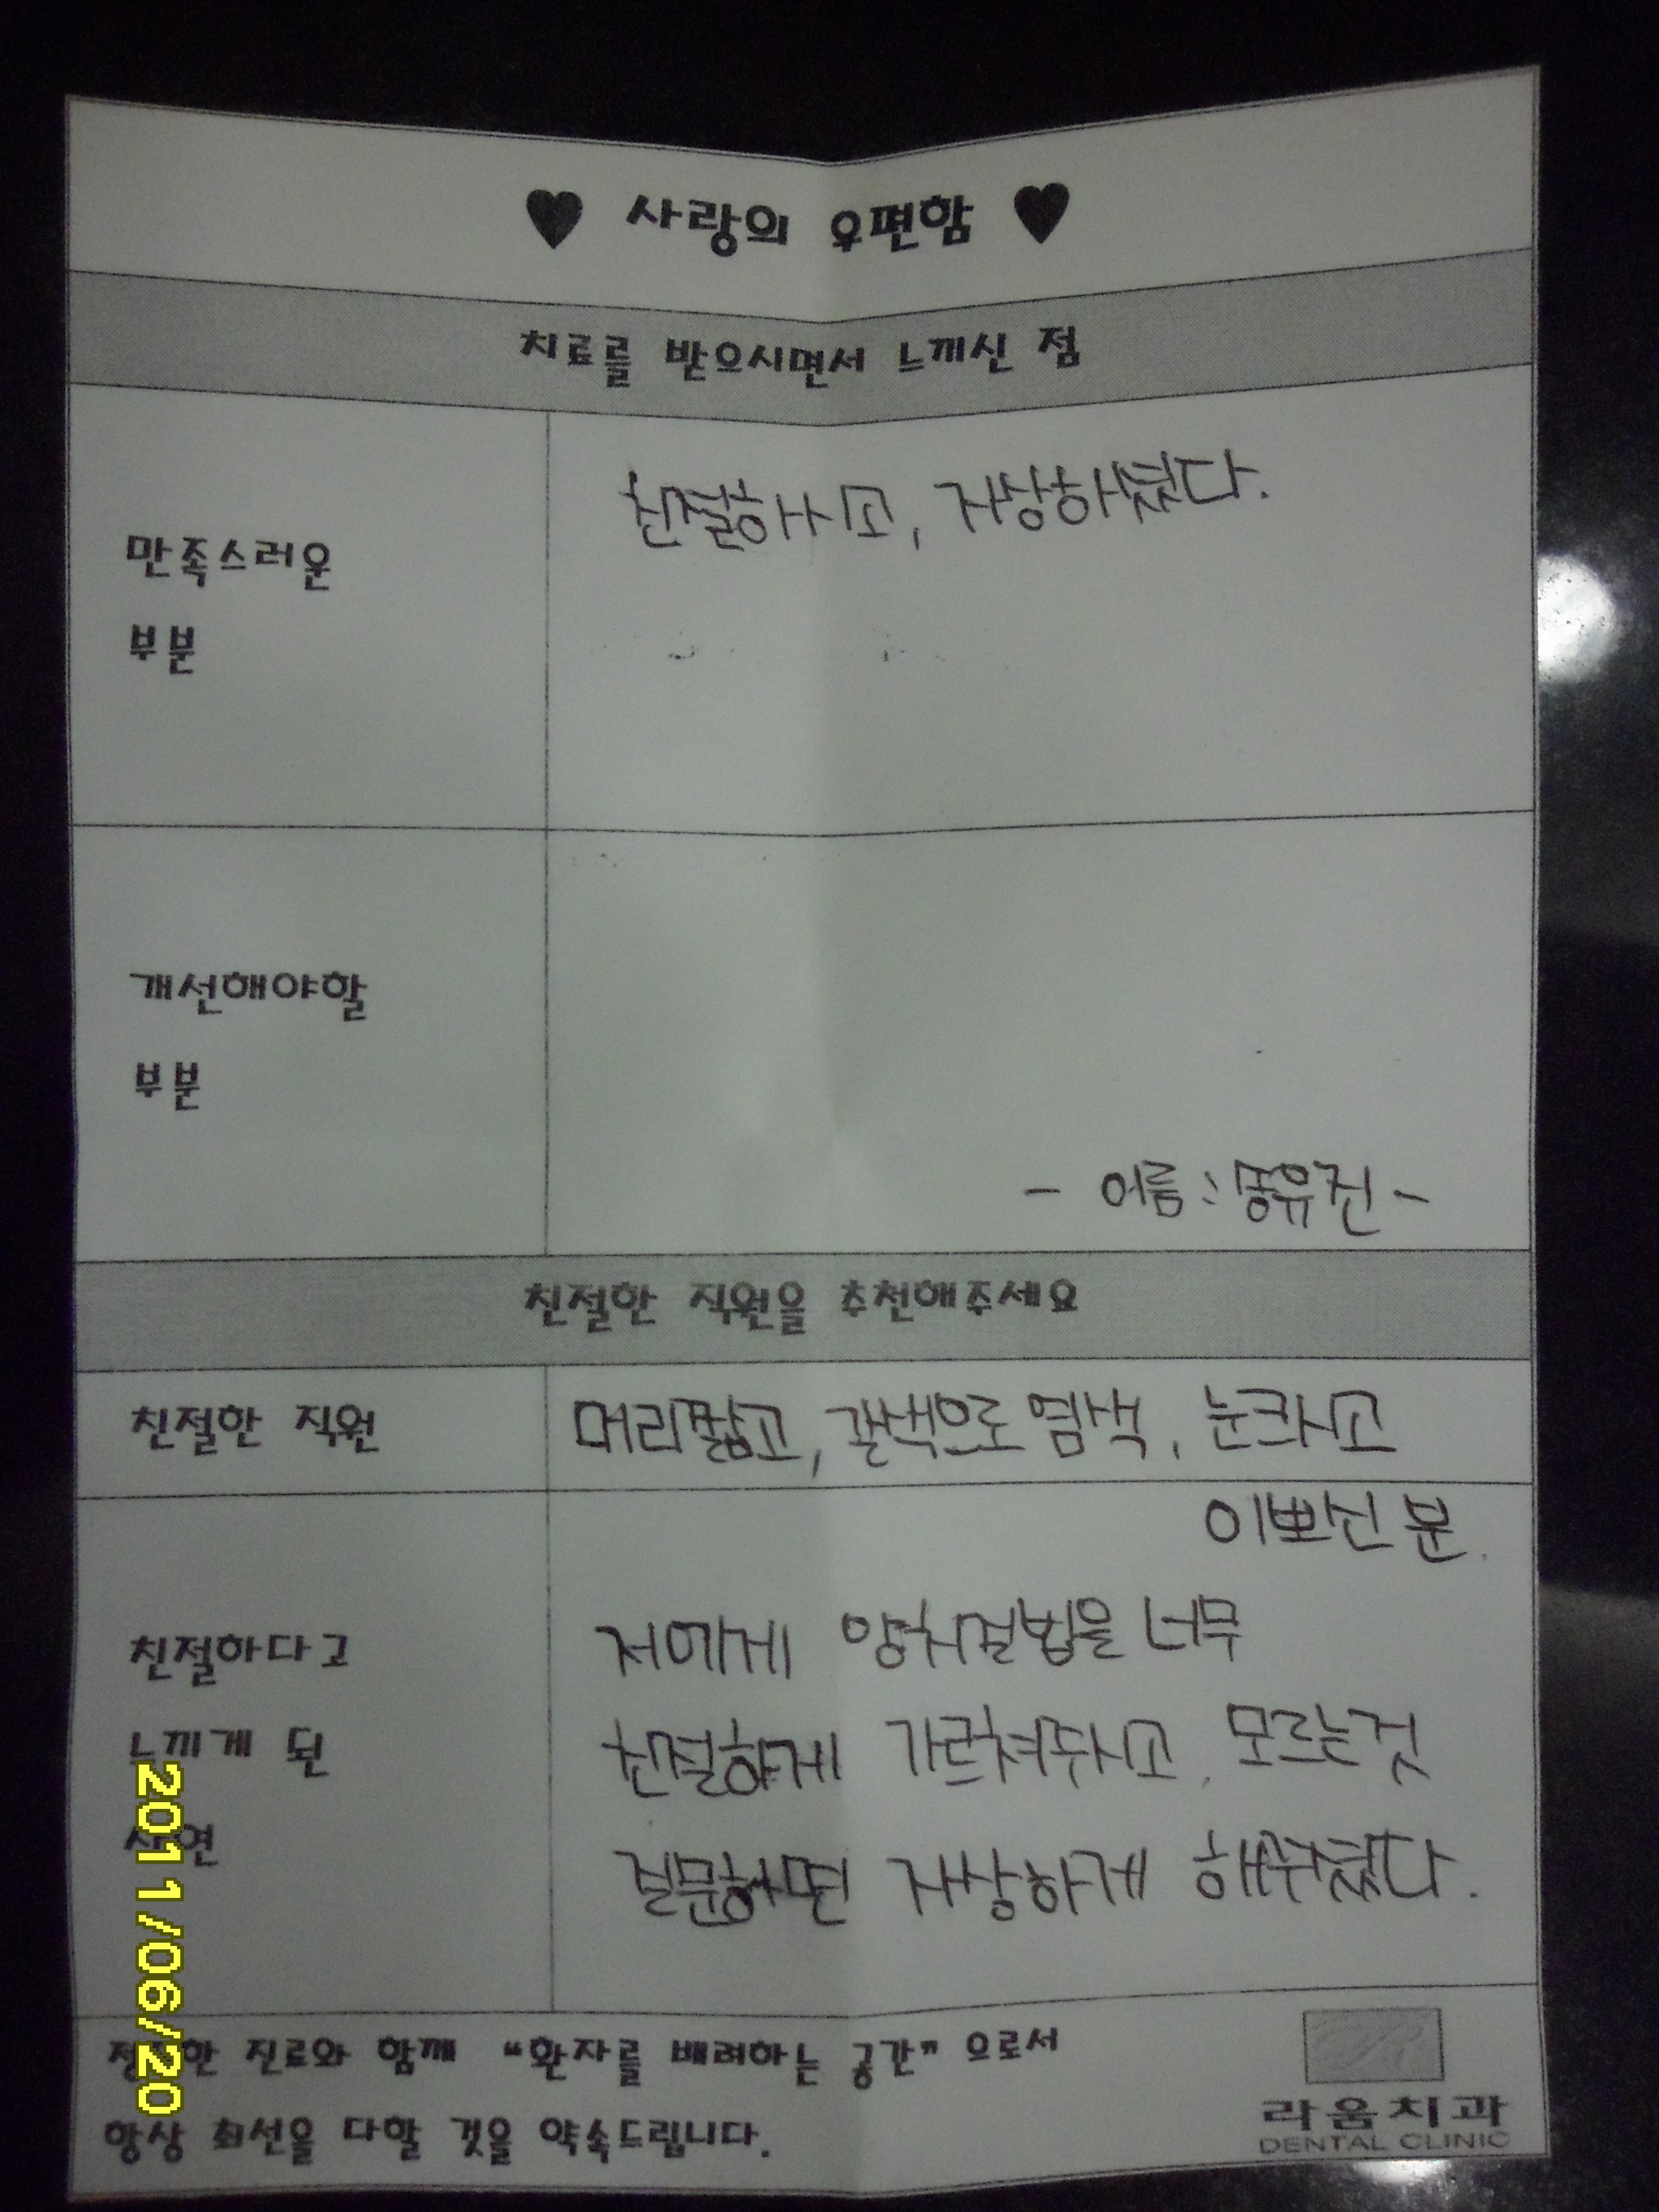 ♥ 사랑의 우편함 ♥
치료를 받으시면서 느끼신 점
만족스러운
부분
친절하시고, 자상하셨다.
개선해야할
부분
- 이름 : 송유진 -
친절한 직원을 추천해주세요
친절한 직원
머리짧고, 갈색으로 염색, 눈크시고
이쁘신 분.
친절하다고
느끼게 된
사연
저에게 양치질법을 너무
친절하게 가르쳐주시고, 모르는것
질문하면 자상하게 해주셨다.
한 진료와 함께 "환자를 배려하는 공간" 으로서
항상 최선을 다할 것을 약속드립니다.
라움치과
DENTAL CLINIC
2011/06/20